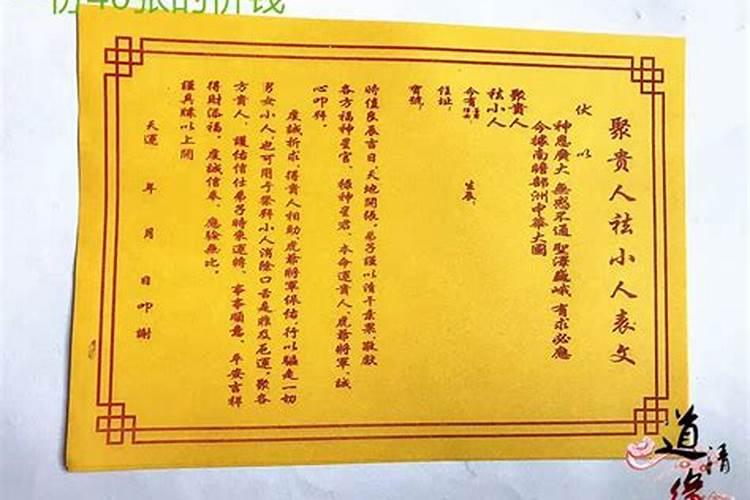 一份40张的价钱
聚貴人祛小人表文
伏以
神恩廣大 無感不通 聖澤盛峨 有求必應
今據南瞻部洲中華大國
聚貴人
祛小人
今有
住址
生辰
寶號
時值良辰吉日，天地開張，弟子謹以清干素果 敬獻
各方福神星官、祿神星君、本命運貴人、虎爺將軍，誠
心叩拜。
虔誠祈求，得貴人相助虎爺將軍保佑 行以驅走一切
男女小人，也可用于祭拜小人消除口舌是非及厄運，聚各
方貴人，護佑信仕弟子時來運轉、事事順意、平安吉祥
得財添福。虔誠信奉，應驗無比。
謹具牒以上聞
天運 年 月 日叩謝
道清緣